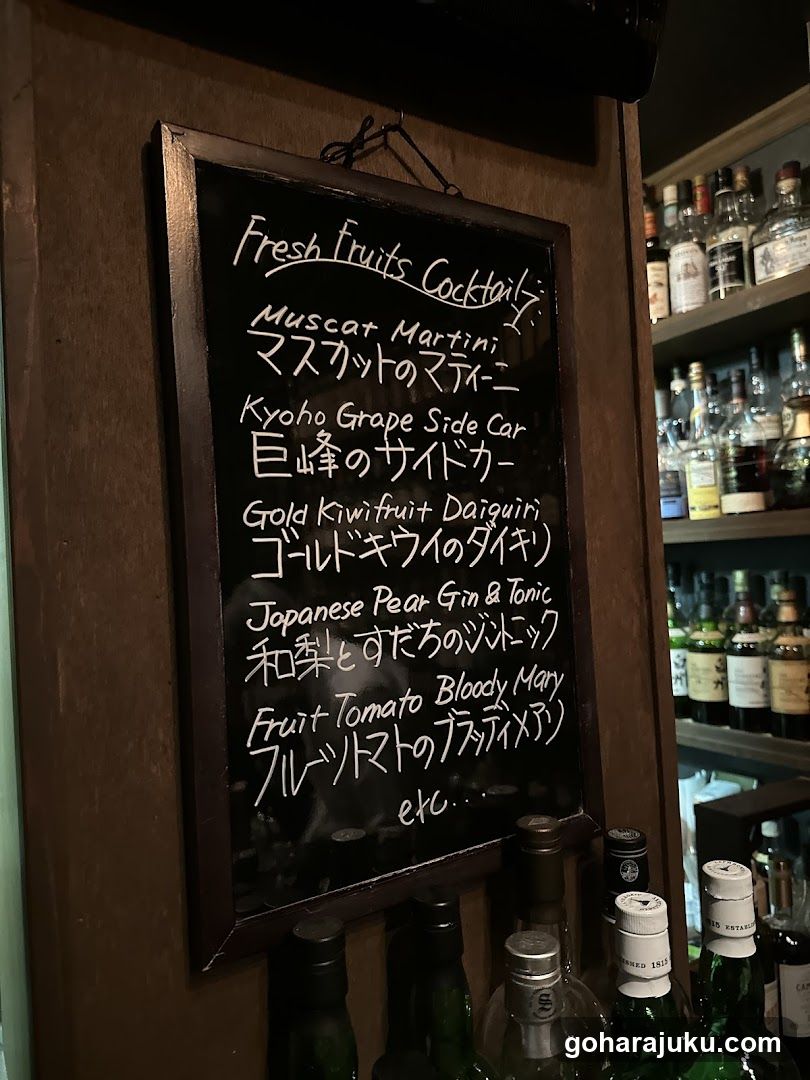 Fresh Fruits Cocktail
Muscat Martini
マスカットのマティーニ
Kyoho Grape Side Car
巨峰のサイドカー
Gold Kiwifruit Daiquiri
ゴールドキウイのダイキリ
Japanese Pear Gin & Tonic
和梨とすだちのジントニック
Fruit Tomato Bloody Mary
フルーツトマトのブラッディメアリ
etc...
1815
1815 ESTABL
goharajuku.com